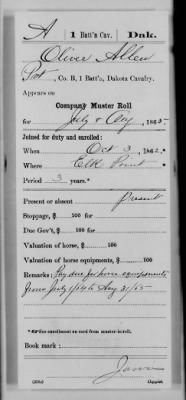 A 1 Batt'n Cav. Dak.
Oliver Allen
Pvt, Co. B, 1 Batt'n, Dakota Cavalry.
Appears on
Company Muster Roll
for July & Aug, 1865
Joined for duty and enrolled:
When Oct 3, 1862.*
Where Elk Point
Period 3 years.*
Present or absent Present
Stoppage, $ 100 for
Due Gov't, $ 100 for
Valuation of horse, $ 100
Valuation of horse equipments, $ 100
Remarks: Pay due for horse equipments
from July 1/64 to Aug 31/65
*See enrollment on card from muster-in roll.
Book mark:
Copyist.